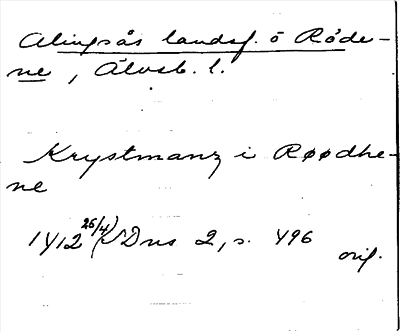 Alingsås landsf. ö Röde-
ne, Älvsb. l.
Krystmanz i Røødhe-
ne
1412 26/4 SDns 2, s. 496
orig.